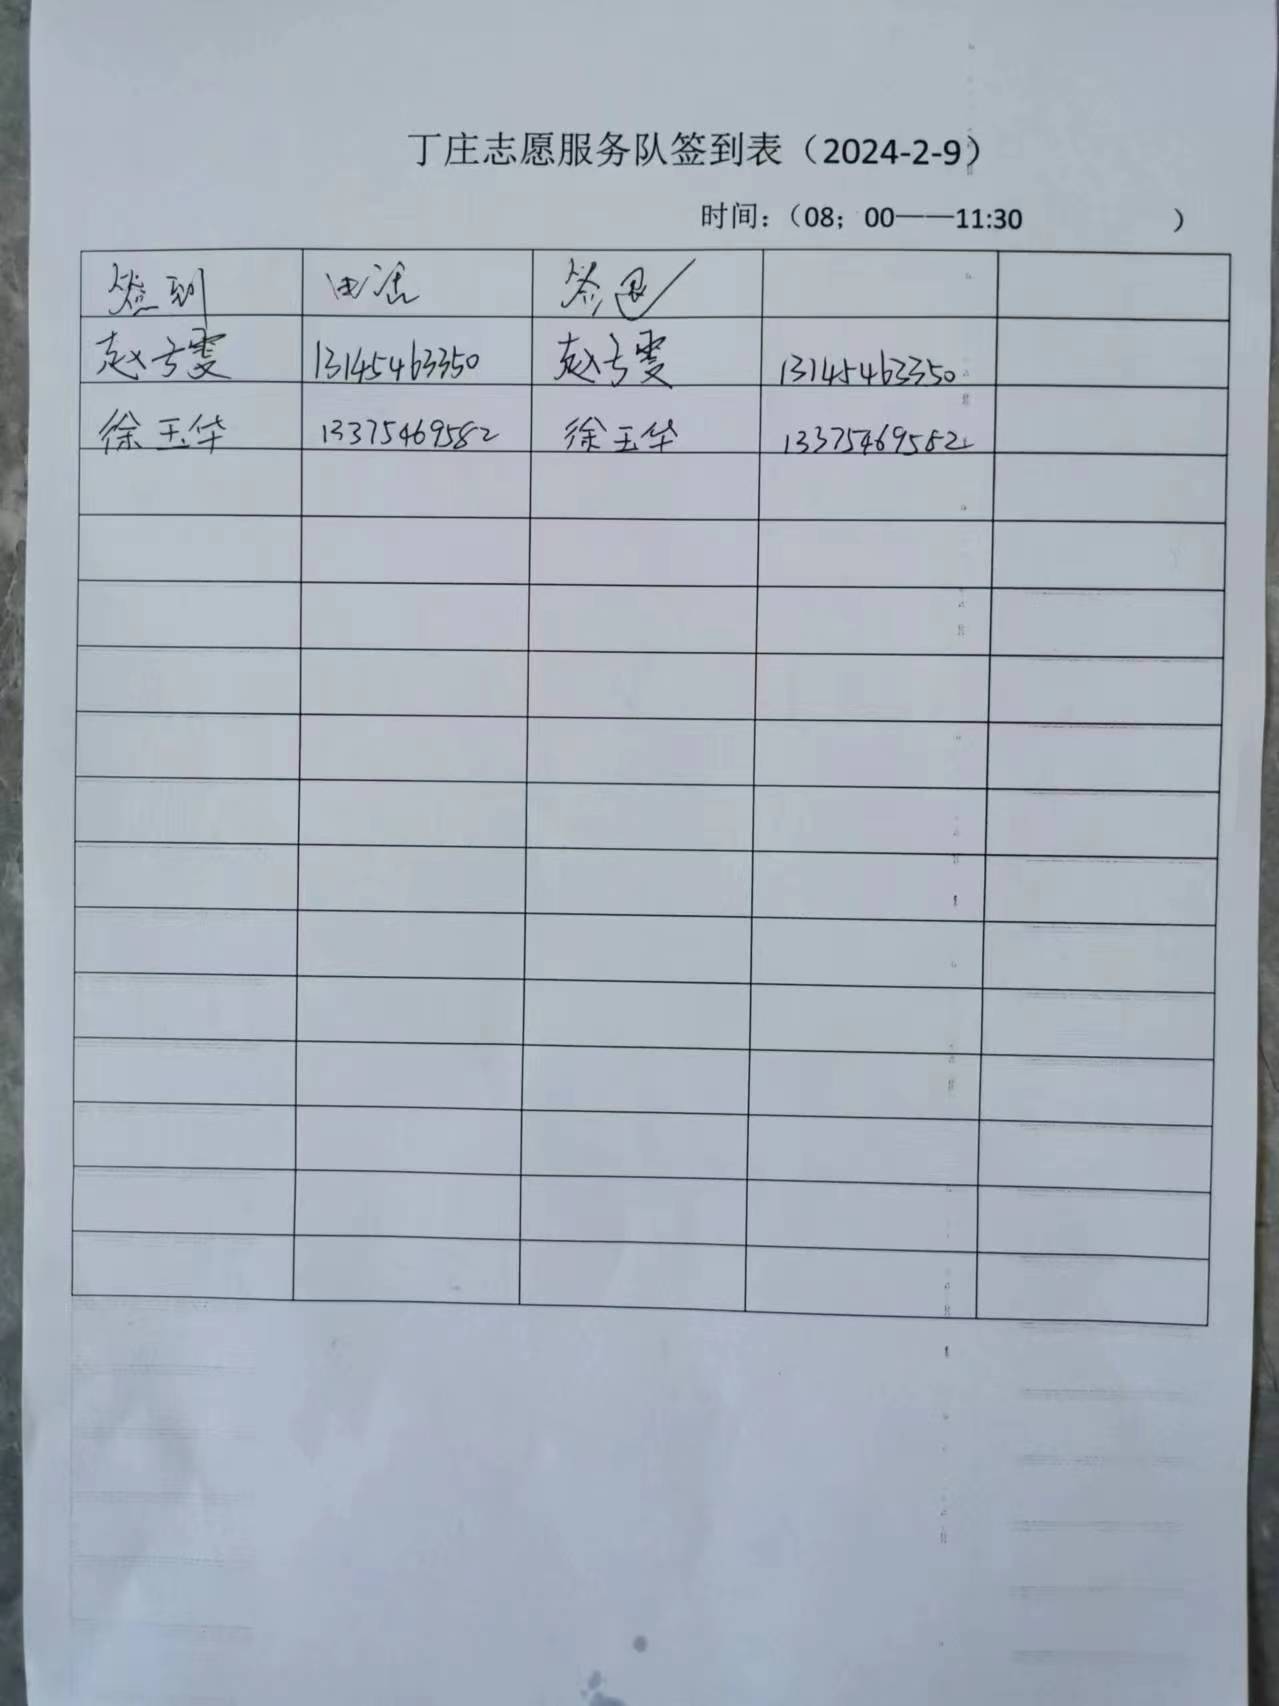 丁庄志愿服务队签到表（2024-2-9）
时间：（08；00——11:30 ）
签到 电话 签退
赵玄雯 13145463350 赵玄雯 13145463350
徐玉华 13375469582 徐玉华 13375469582